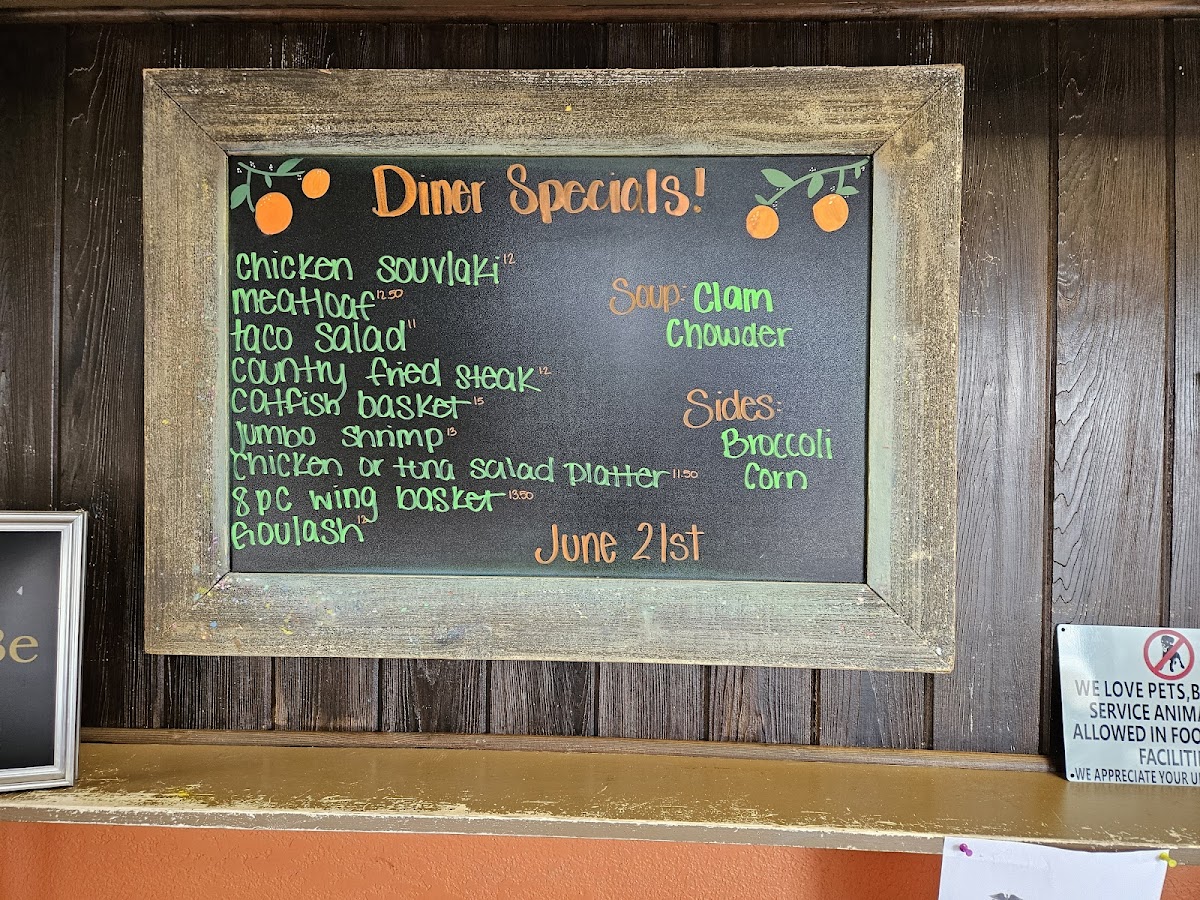 Diner Specials!
Chicken Souvlaki 12
meatloaf 12.50
taco salad 11
Country fried steak 12
Catfish basket 15
Jumbo shrimp 13
Chicken or tuna salad platter 11.50
8 pc wing basket 13.50
Goulash 12
Soup: Clam
Chowder
Sides:
Broccoli
Corn
June 21st
Be
WE LOVE PETS, B
SERVICE ANIMA
ALLOWED IN FOO
FACILITI
WE APPRECIATE YOUR U